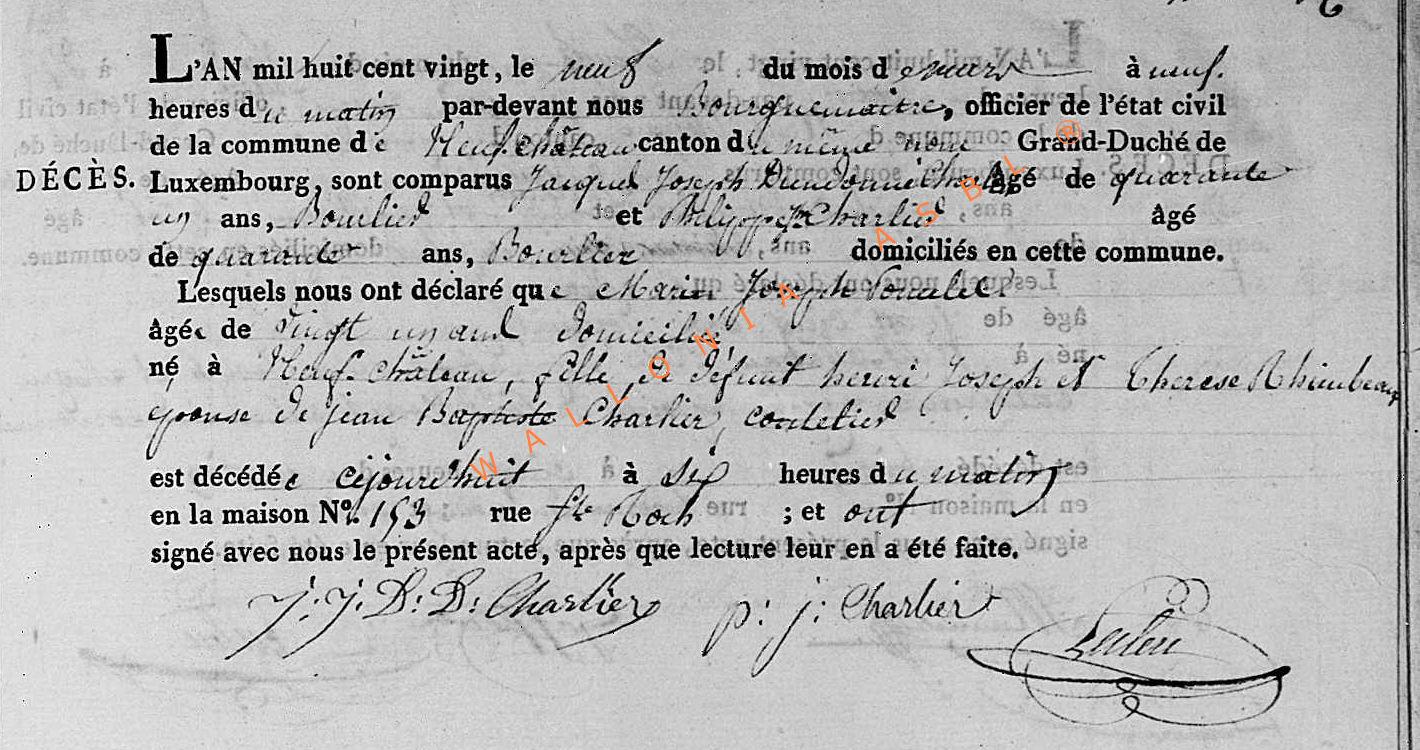 L'AN mil huit cent vingt, le neuf du mois de mars à neuf
heures du matin par-devant nous Bourguemaitre, officier de l'état civil
de la commune de Neufchâteau canton du même nom Grand-Duché de
DÉCÈS. Luxembourg, sont comparus Jacques Joseph Dieudonné Charlier âgé de quarante
un ans, Bourlier et Philippe Jh Charlier âgé
de quarante ans, Bourlier domiciliés en cette commune.
Lesquels nous ont déclaré que Marie Joseph
âgée de vingt un ans domiciliée
né à Neufchâteau, fille de défunt henri Joseph et Therese
epouse de jean Baptiste Charlier,
est décédée cejourd'huit à six heures du matin
en la maison N°. 153 rue St Roch ; et ont
signé avec nous le présent acte, après que lecture leur en a été faite.
J: J: D: D: Charlier p: j: Charlier
WALLONIA ASBL ®